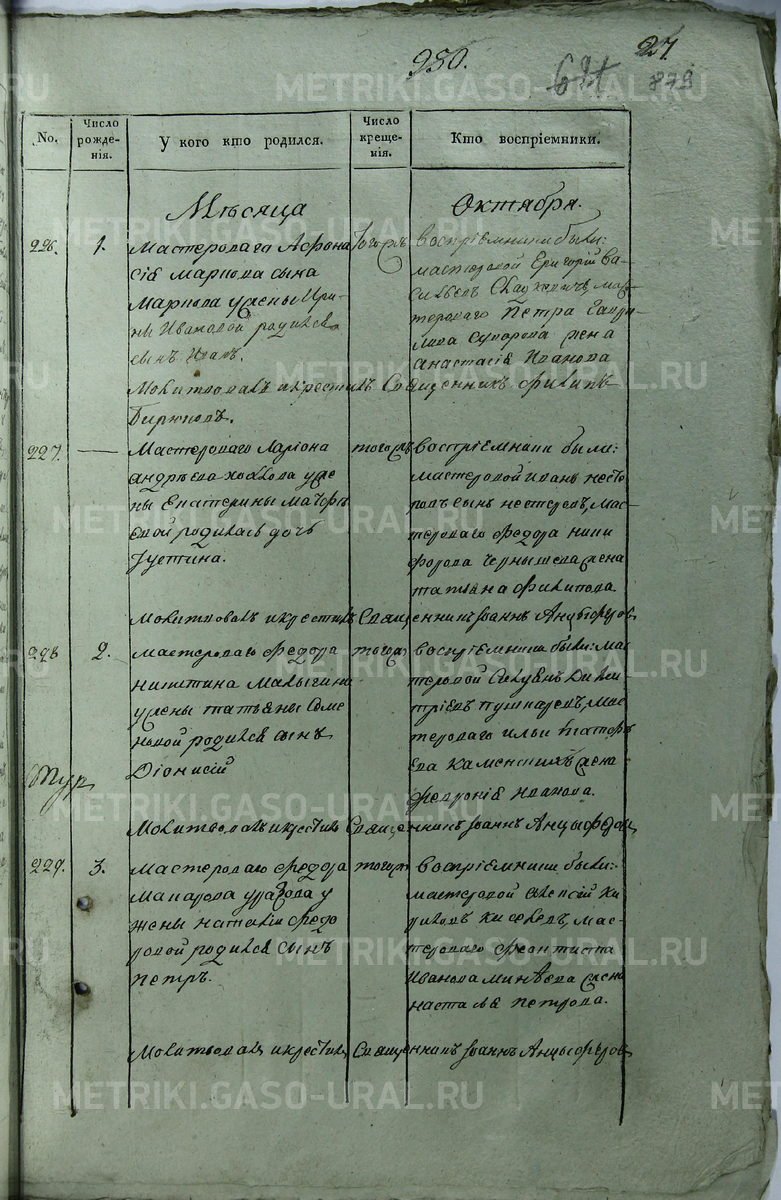 950.
27.
879
No.
Число рожденія.
У кого кто родился.
Число крещенія.
Кто воспріемники.
Мѣсяца Октября.
226. 1. Мастероваго Афона
сія Маркова сына
Маркова у жены Ири
ны Ивановой родился
сынъ Иванъ.
Молитвовалъ и крестилъ Священникъ Филипъ
Бирюковъ.
тогожъ
Воспріемники были:
мастеровой Григорій Ва
сильевъ мас
тероваго Петра Гаври
лова Суворова жена
Анастасія Иванова
227. — Мастероваго Ларіона
Андрѣева у же
ны Екатерины
родилась дочь
Іустина.
тогожъ
Воспріемники были:
мастеровой Иванъ Несте
ровъ сынъ Нестеровъ, мас
тероваго Федора Ники
форова Чернышева жена
Татьяна Филипова.
Молитвовалъ и крестилъ Священникъ Іоаннъ Анцыферовъ
228 2. Мастероваго Федора
Никитина Малыгина
у жены Татьяны Семе
новой родился сынъ
Діонисій
тогожъ
Воспріемники были: мас
теровой Дими
тріевъ Пушкаревъ, мас
тероваго Ильи
Каменскихъ жена
Февронія Иванова.
Молитвовалъ и крестилъ Священникъ Іоаннъ Анцыферовъ
229. 3. Мастероваго Федора
Макарова у
жены Наталіи Федо
ровой родился сынъ
Петръ.
тогожъ
Воспріемники были:
мастеровой Алексій Ки
риловъ Киселевъ, мас
тероваго Феоктиста
Иванова Минѣева жена
Настасья Петрова.
Молитвовалъ и крестилъ Священникъ Іоаннъ Анцыферовъ
METRIKI.GASO-URAL.RU